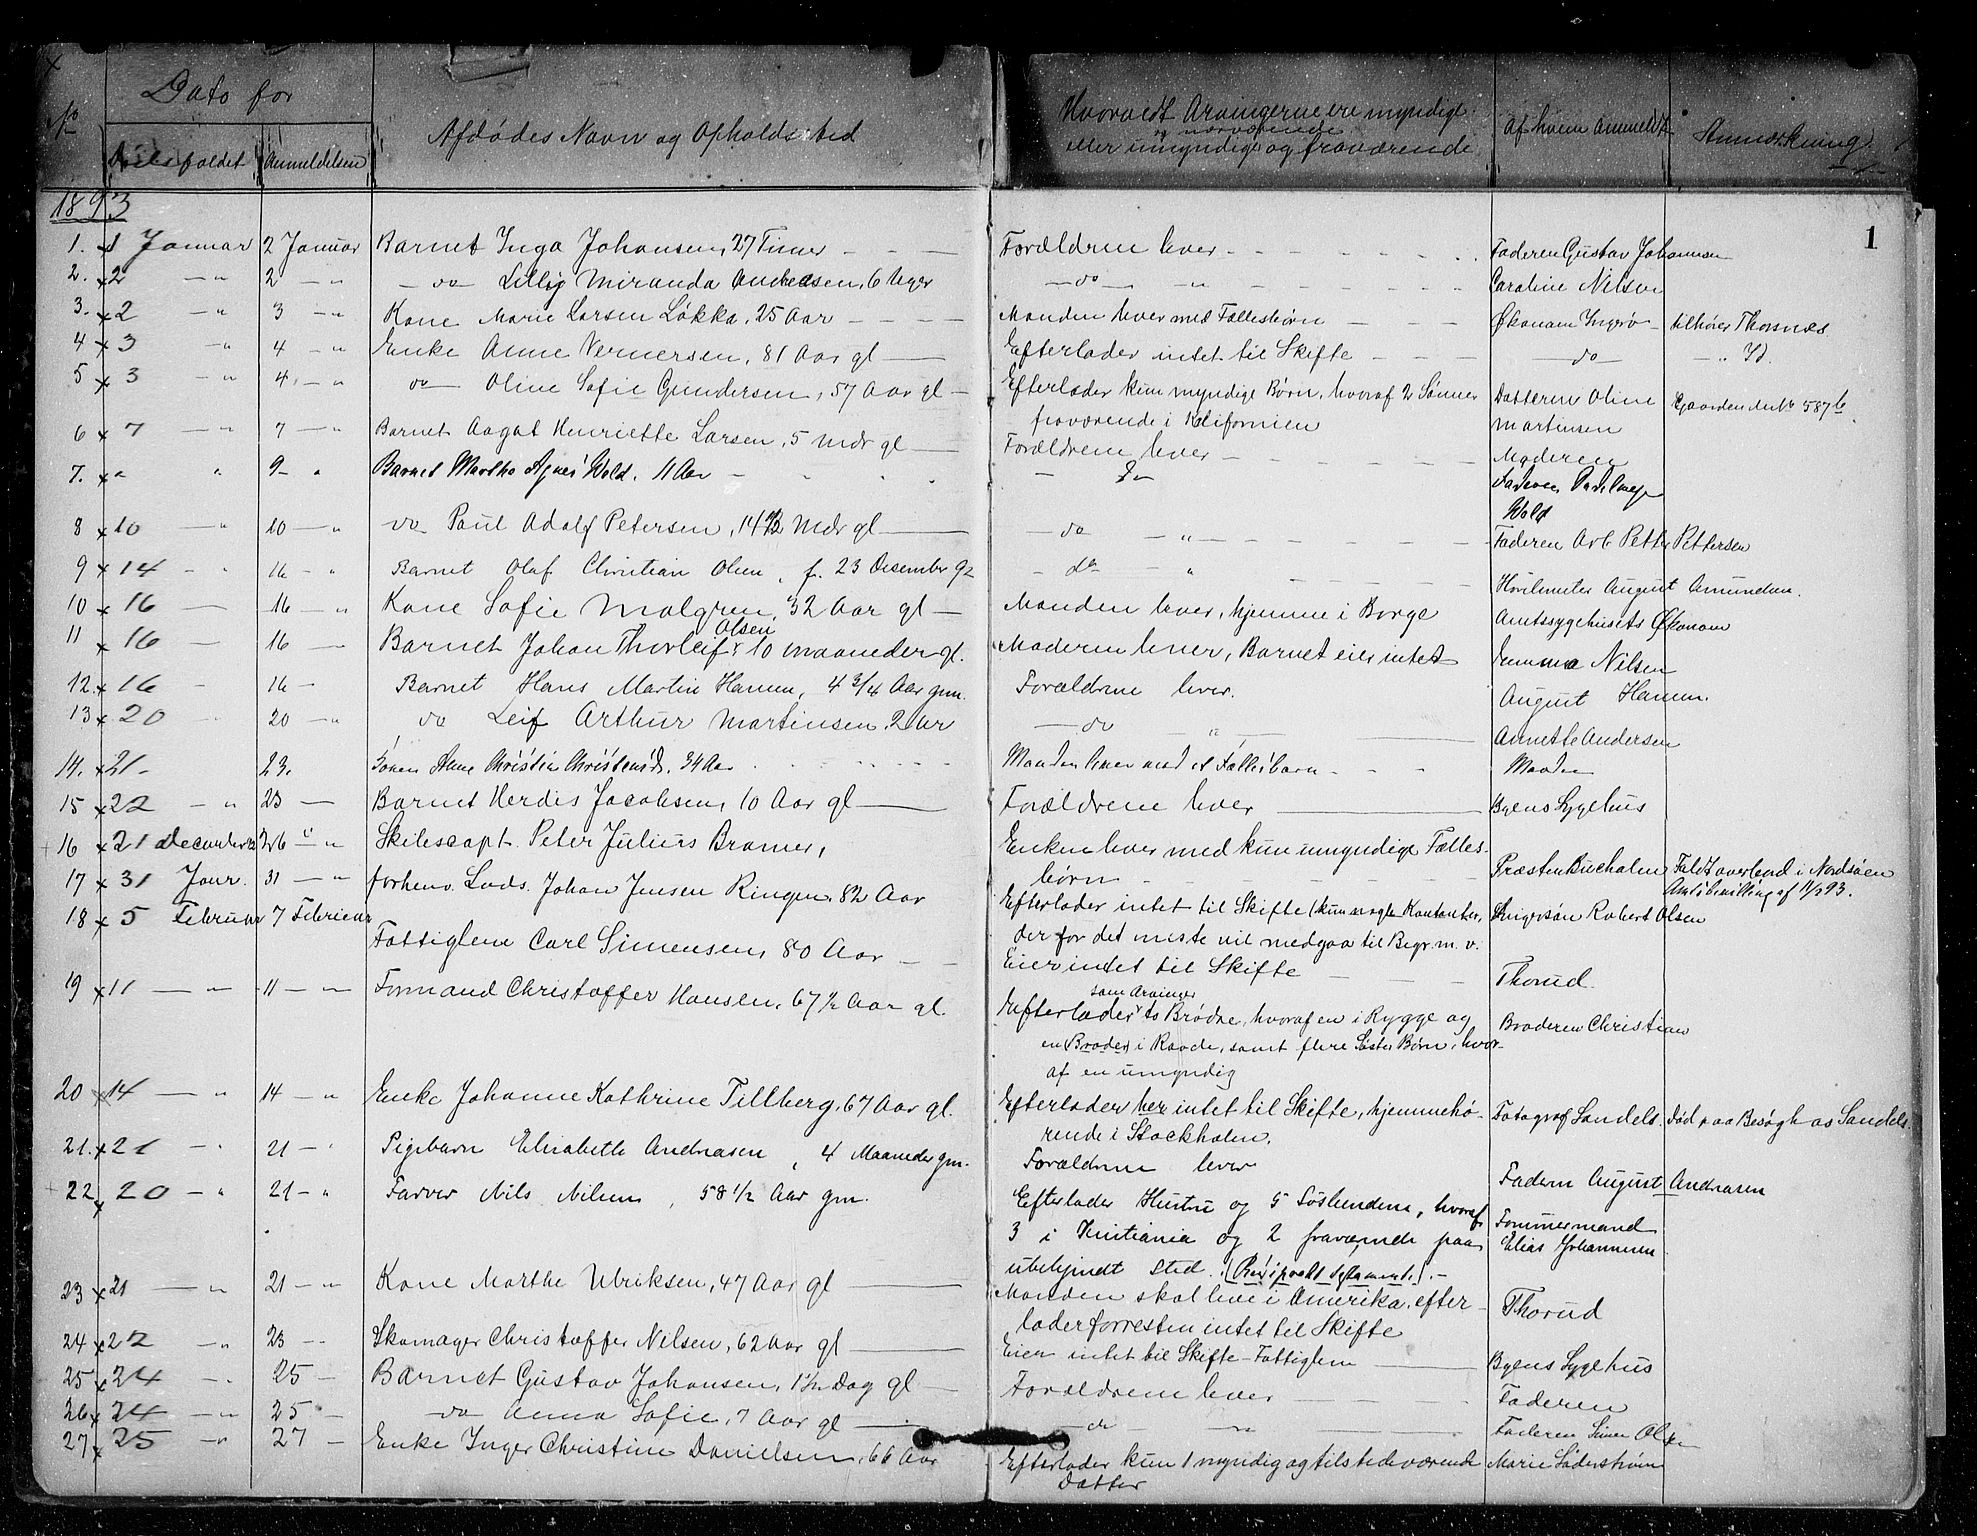 No
Dato for
Dødsfaldet
Anmeldelsen
Afdødes Navn og Opholdssted
Hvorvidt Arvingerne ere myndige
og nærværende
eller umyndige og fraværende
af hvem anmeldt
Anmærkning
1893
1
1. x 1 Januar 2 Januar Barnet Inga Johansen, 27 Timer Forældrene lever Faderen Gustav Johannsen
2. x 2 - " 2 - " - do - Lilly Miranda Andreasen, 6 Uger - do - " Caroline Nilsen
3. x 2 - " 3 - " Kone Marie Larsen Løkka, 25 Aar Manden lever med Fællesbørn Økonom Ingerø - tilhører Thorsnæs
4 x 3 - " 4 - " Enke Anne Vernersen, 81 Aar gl Efterlader intet til Skifte - do - - " Id.
5 x 3 - " 4. - " do Oline Sofie Gundersen, 57 Aar gl - Efterlader kun myndige Børn, hvoraf 2 Sønner Datteren Oline Gaarden Mt No 587b
fraværende i Kalifornien Martinsen
6 x 7 - " 7 - " Barnet Aagot Henriette Larsen, 5 Mdr gl Forældrene lever Moderen
7. x " " 9 - " Barnet Martha Agnes Wold. 11 Aar - Do Faderen
Wold
8 x 10 - " 10 - " do Paul Adolf Petersen, 14 1/2 Mdr gl - do - " Faderen Arb. Petter Pettersen
9 x 14 - " 16 - " Barnet Olaf Christian Olsen, f. 23 Desember 92 - do - " August Amundsen.
10 x 16 - 16 - " Kone Sofie Malgren, 32 Aar gl - Manden lever, hjemme i Borge Amtssygehusets Økonom
Olsen
11 x 16 - 16 - Barnet Johan Thorleif 10 maaneder gl. Moderen lever, Barnet eier intet Emma Nilsen
12. x 16 - 16 - Barnet Hans Martin Hansen, 4 3/4 Aar gm. Forældrene lever. August Hansen.
13 x 20 20 - " do Leif Arthur Martinsen, 2 Aar - do " Annette Andersen
14. x 21. 23. Konen Anne Christine 34 Aar Manden lever med et Fællesbarn Manden
15 x 22 - " 23 - Barnet Herdis Jacobsen, 10 Aar gl Forældrene lever Byens Sygehus
16 x 21 December 92 26 " " Skibscapt. Peter Julius Bromer, Enken lever med kun umyndige Fælles-
børn Præsten Bucholm Faldt overbord i Nordsøen
Amtsbevilling af
17 x 31 Janr. 31 - " forhenv. Lods. Johan Jensen Ringen, 82 Aar Efterlader intet til Skifte (kun nogle Kontanter, Svigersøn Robert Olsen
der for det meste vil medgaa til Begr. m. v.
18 x 5 Februar 7 Februar Fattiglem Carl Simensen, 80 Aar - Eier intet til Skifte Thorud.
19 x 11 - " 11 - " Formand Christoffer Hansen, 67 1/2 Aar gl. som Arvinger
Efterlader to Brødre, hvoraf en i Rygge og Broderen Christian
en (Broder) i Raade, samt flere Søster Børn, hvor-
af en umyndig
20 x 14 - " 14 - " Enke Johanne Kathrine Tillberg, 67 Aar gl. Efterlader her intet til Skifte, hjemmehø- Fotograf Sandels. Død paa Besøg hos Sandels.
rende i Stockholm.
21. x 21 - " 21 - " Pigebarn Elisabeth Andreasen, 4 Maaneder gm. Forældrene lever Faderen August Andreasen
22 x 20 - " 21 - " Farver Nils Nilsen, 58 1/2 Aar gm. Efterlader Hustru og 5 Søskendene, hvoraf Tømmermand
3 i Kristiania og 2 fraværende paa Elias Johannesen
ubekjendt sted. (Resiprokt Testamente). -
23 x 21 - " 21 - " Kone Marthe Ulriksen, 47 Aar gl Manden skal leve i Amerika, efter- Thorud
lader forresten intet til Skifte
24 x 22 - " 23 - Skomager Christoffer Nilsen, 62 Aar gl Eier intet til Skifte - Fattiglem Byens Sygehus
25 x 24 - " 25 - Barnet Gustav Johansen, 1 1/2 Dag gl - Forældrene lever Faderen
26 x 24 - " 25 - do Anna Sofie, 7 Aar gl - do " Faderen Simen Olsen
27 x 25 - " 27 - Enke Inger Christine Danielsen, 66 Aar Efterlader kun 1 myndig og tilstedeværende Marie Söderstrøm
Datter